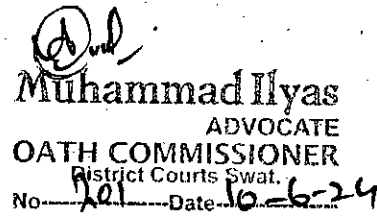 Muhammad Ilyas
ADVOCATE
OATH COMMISSIONER
District Courts Swat.
No 201 Date 10-6-24